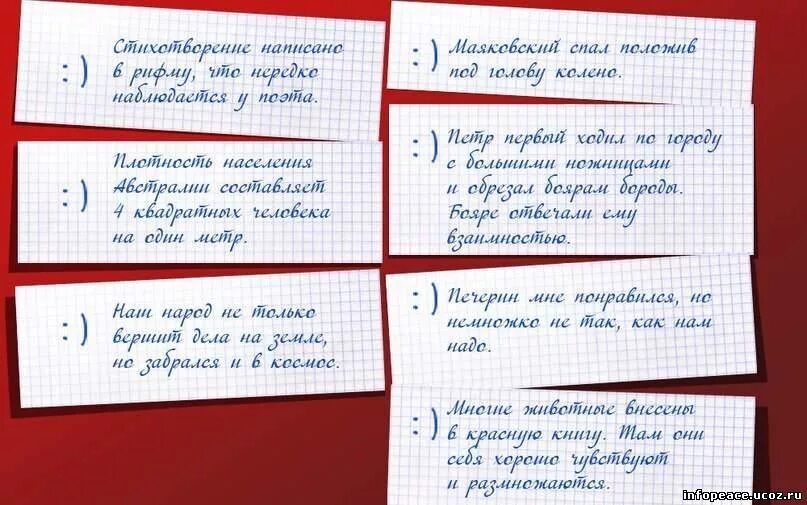 :) Стихотворение написано
в рифму, что нередко
наблюдается у поэта.
:) Плотность населения
Австралии составляет
4 квадратных человека
на один метр.
:) Наш народ не только
вершит дела на земле,
но забрался и в космос.
:) Маяковский спал положив
под голову колено.
:) Петр первый ходил по городу
с большими ножницами
и обрезал боярам бороды.
Бояре отвечали ему
взаимностью.
:) Печерин мне понравился, но
немножко не так, как нам
надо.
:) Многие животные внесены
в красную книгу. Там они
себя хорошо чувствуют
и размножаются.
infopeace.ucoz.ru